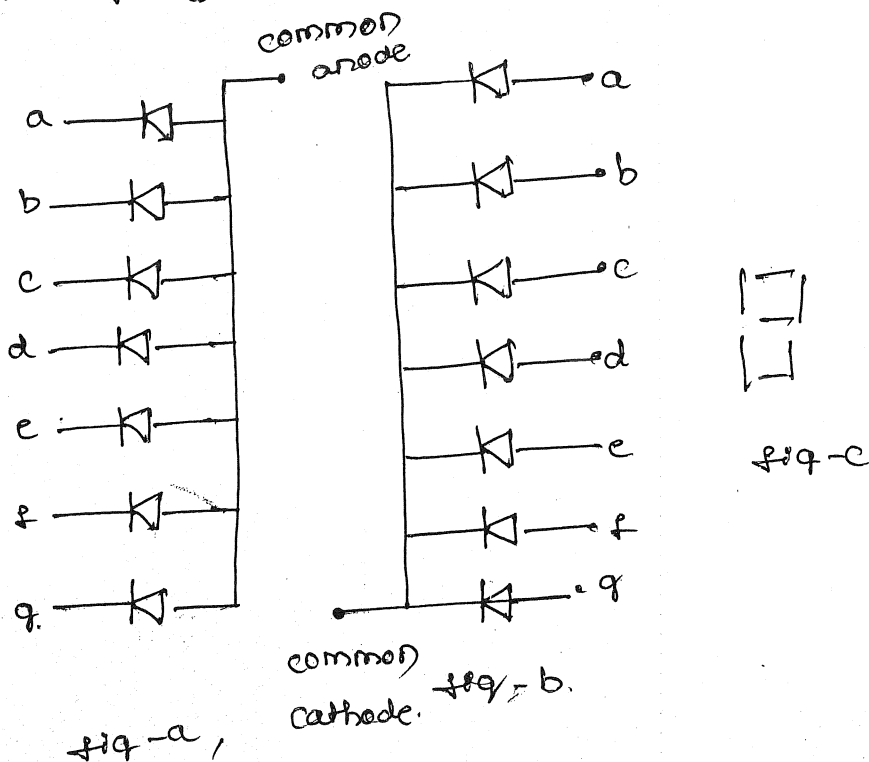 common
anode
a
b
c
d
e
f
g.
a
b
c
d
e
f
g
common
cathode.
fig-a,
fig-b.
fig-c